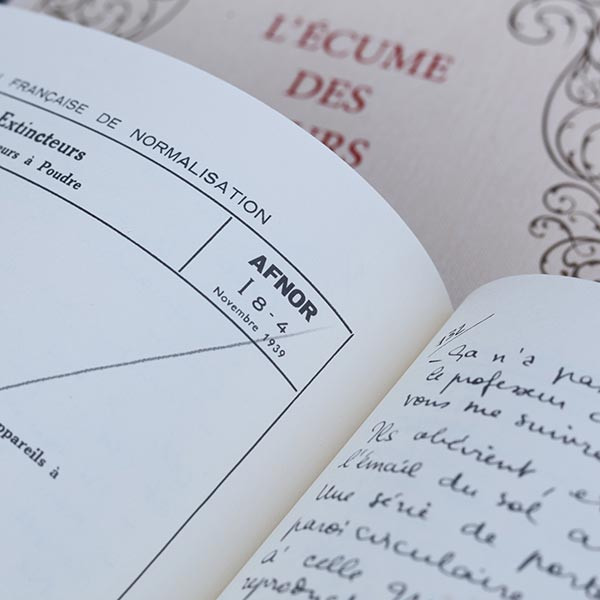 L'ÉCUME
DES
URS
FRANÇAISE DE NORMALISATION
Extincteurs
eurs à Poudre
AFNOR
I 8-4
Novembre 1939
ppareils à
132
– ça n'a pas
le professeur
vous me suivre
Ils obéirent, e
l'émail du sol a
Une série de porte
paroi circulaire
à celle
reprodu